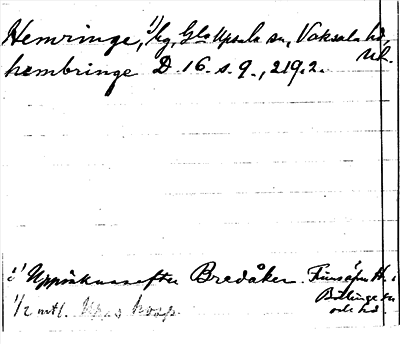 Hemringe, 1) by, Gla Upsala sn, Vaksala hd,
Ul.
hembringe D. 16. s. 9., 219. 2.
1) Uppräknas efter Bredåker.
Bälinge sn
1/2 mtl.
och hd.